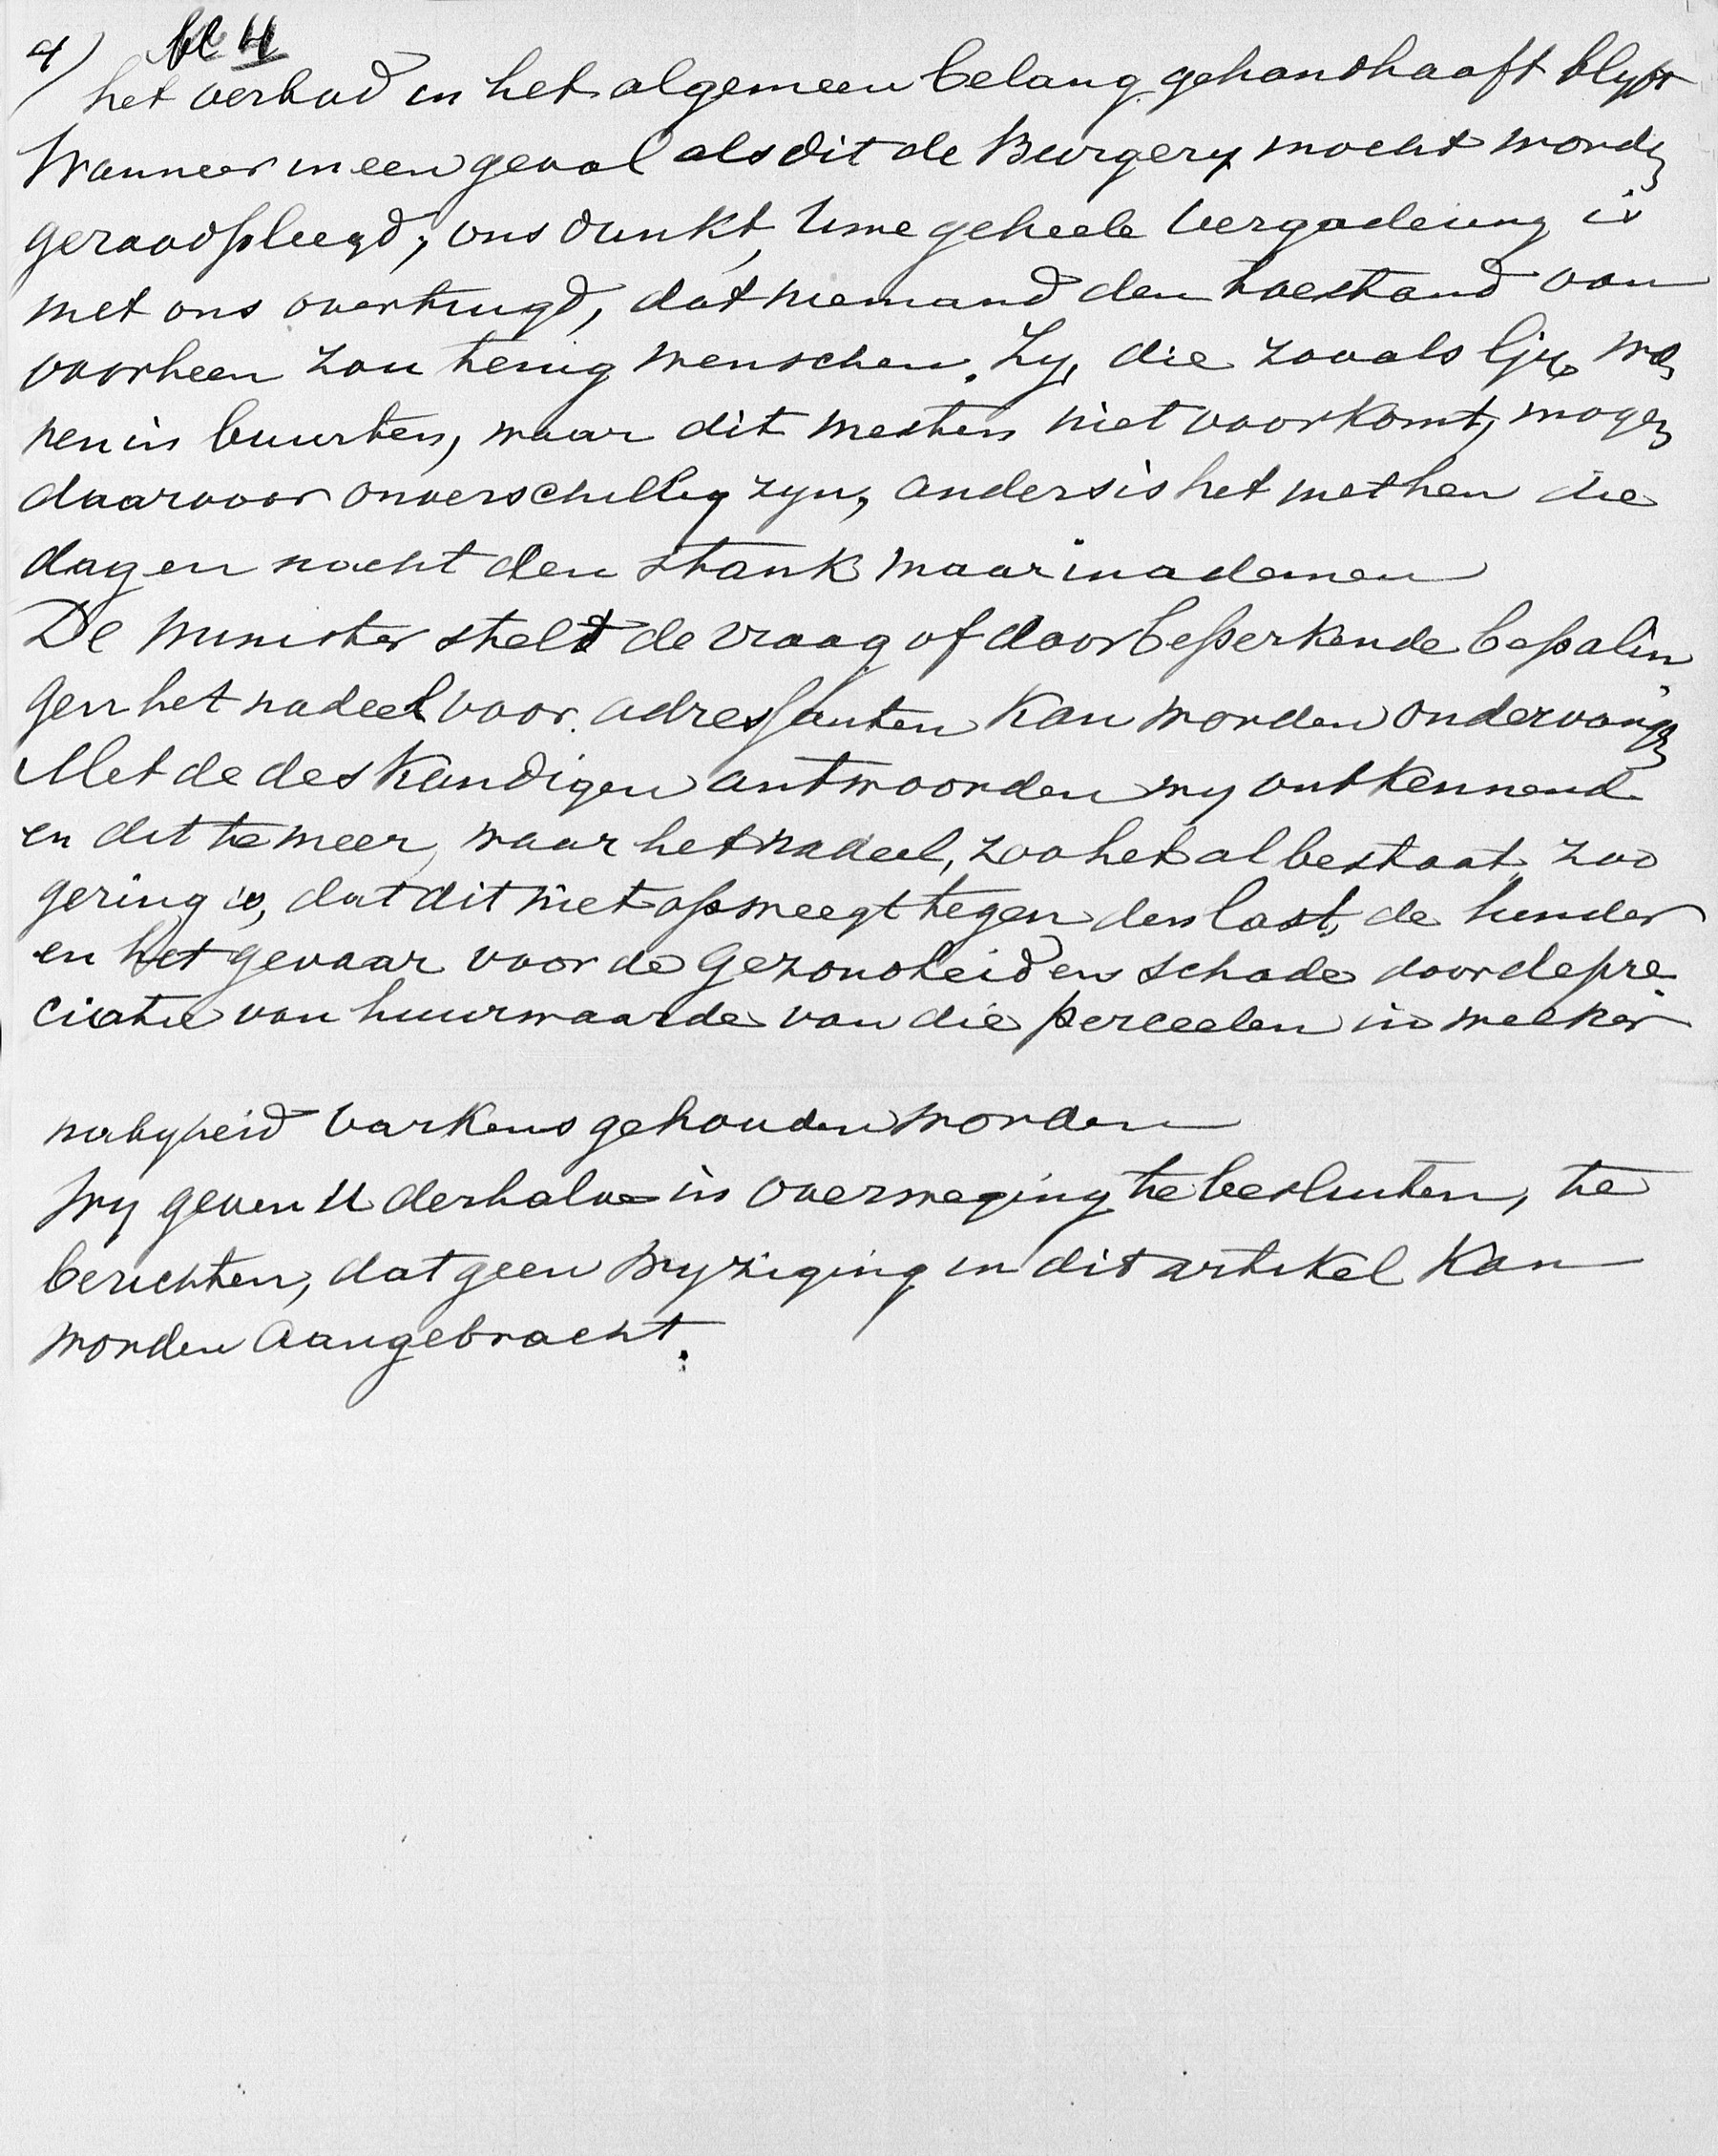 4) bl 4
het verbod in het algemeen belang gehandhaaft blyft
Wanneer in een geval als dit de Burgery mocht worden
geraadpleegd, ons dunkt, Uwe geheele Vergadering is
met ons overtuigd, dat niemand den toestand van
voorheen zou terug wenschen. Zy, die zooals wo
nen in buurten, waar dit mesten niet voorkomt, mogen
daarvoor onverschillig zyn, anders is het met hen die
dag en nacht den stank maar inademen
De Minister stelt de vraag of door beperkende bepalin
gen het nadeel voor adressanten kan worden ondervangen
Met de deskundigen antwoorden wy ontkennend
en dit te meer, waar het nadeel, zoo het al bestaat, zoo
gering is, dat dit niet opweegt tegen den last, de hinder
en het gevaar voor de gezondheid en schade door depre
ciatie van huurwaarde van die perceelen in welker
nabyheid varkens gehouden worden
Wy geven U derhalve in overweging te besluiten, te
berichten, dat geen wyziging in dit artikel kan
worden aangebracht.